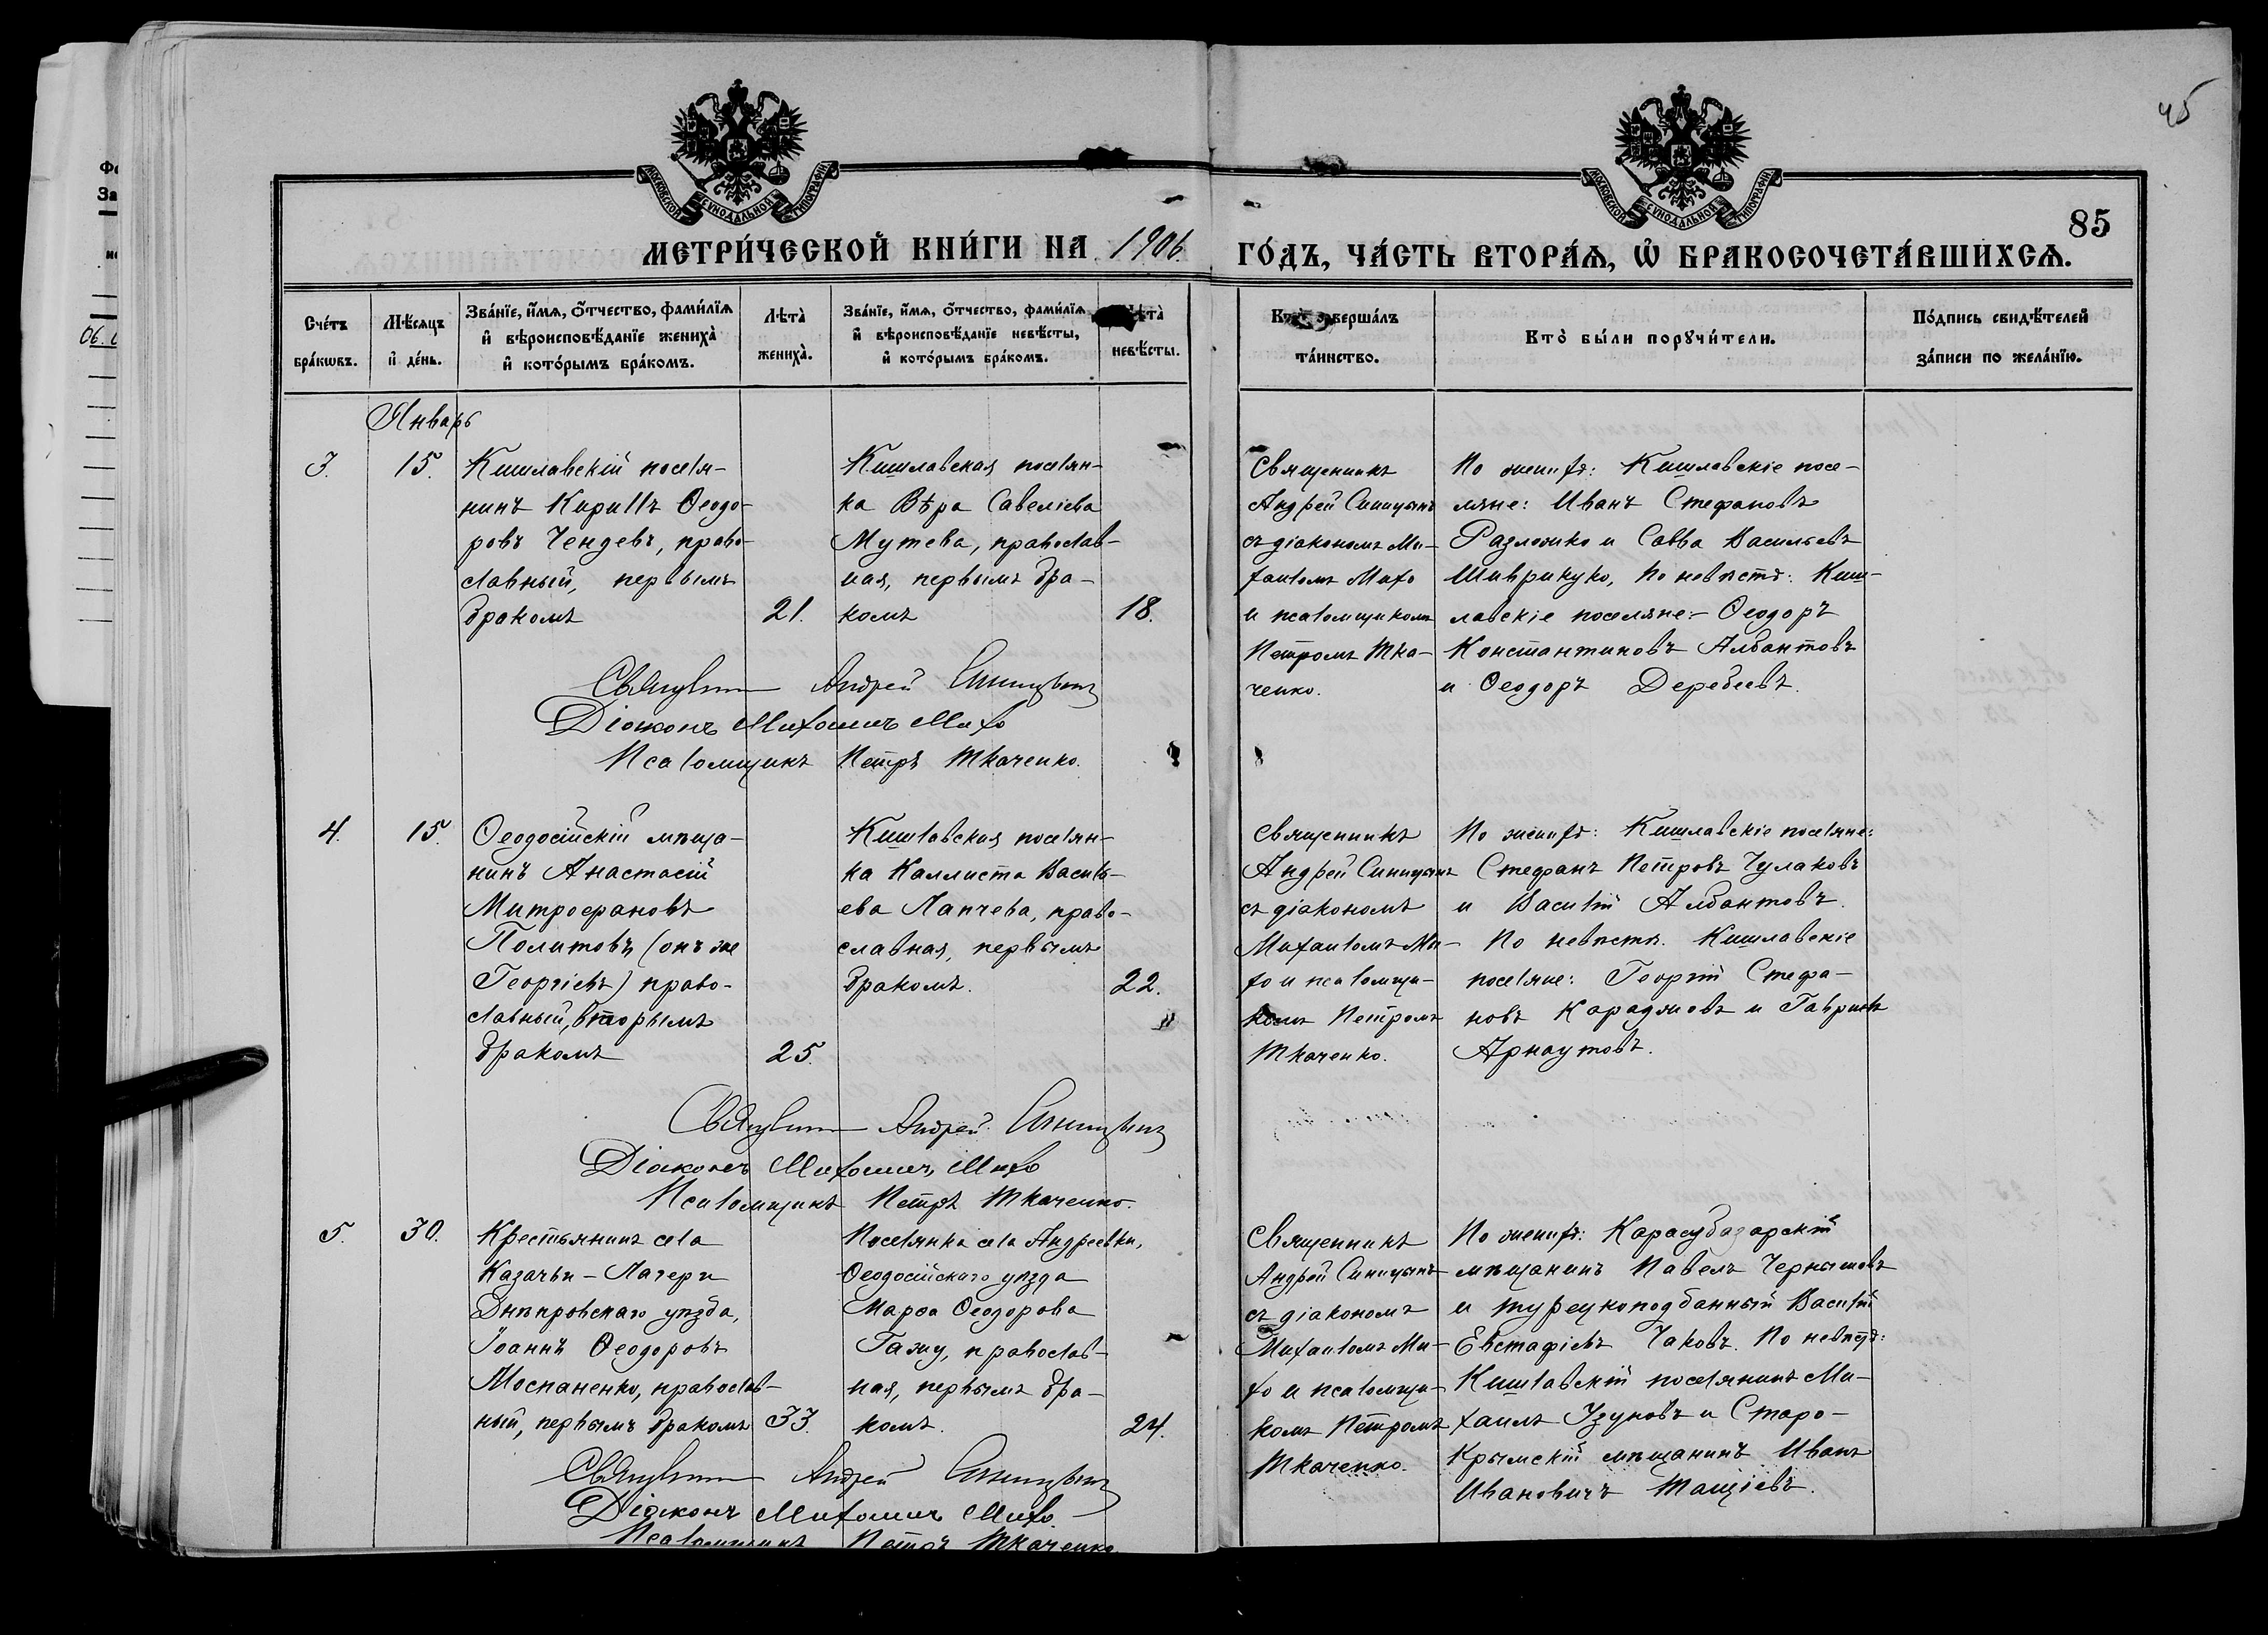 45
85
МОСКОВСКОЙ СѴНОДАЛЬНОЙ ТИПОГРАФІИ
МОСКОВСКОЙ СѴНОДАЛЬНОЙ ТИПОГРАФІИ
МЕТРИ́ЧЕСКОЙ КНИ́ГИ НА 1906 ГО́ДЪ, ЧА́СТЬ ВТОРА́Ѧ, Ѽ БРАКОСОЧЕТА́ВШИХСѦ.
Сче́тъ
бра́кѡвъ.
Мѣ́сяцъ
и҆ де́нь.
Зва́нїе, и҆́мѧ, ѻ҆́тчество, фами́лїѧ
и҆ вѣроисповѣ́данїе жениха̀
и҆ кото́рымъ бра́комъ.
Лѣ́та̀
жениха̀.
Зва́нїе, и҆́мѧ, ѻ҆́тчество, фами́лїѧ
и҆ вѣроисповѣ́данїе невѣ́сты,
и҆ кото́рымъ бра́комъ.
невѣ́сты.
та́инство.
Кто̀ бы́ли порꙋчи́тели.
По́дпись свидѣ́телей
за́писи по жела́нїю.
Январь
3.
15.
Кишлавскій поселя-
нинъ Кириллъ Ѳеодо-
ровъ Чендевъ, право-
славный, первымъ
бракомъ
21.
Кишлавская поселян-
ка Вѣра Савеліева
Мутева, православ-
ная, первымъ бра-
комъ
18.
Священникъ
Андрей Синицынъ
съ діакономъ Ми-
хаиломъ Михо
и псаломщикомъ
Петромъ Тка-
ченко.
По женихѣ: Кишлавскіе посе-
ляне: Иванъ Стефановъ
Разложко и Савва Васильевъ
Шиврикуко, По невѣстѣ: Киш-
лавскіе поселяне:- Ѳеодоръ
Константиновъ Албантовъ
и Ѳеодоръ Деребеевъ.
Священникъ Андрей Синицынъ
Діаконъ Михаилъ Михо
Псаломщикъ Петръ Ткаченко.
4.
15.
Ѳеодосійскій мѣща-
нинъ Анастасій
Митрофановъ
Политовъ (онъ же
Георгіевъ) право-
славный, вторымъ
бракомъ
25.
Кишлавская поселян-
ка Каллиста Василь-
ева Лапчева, право-
славная, первымъ
бракомъ.
22.
Священникъ
Андрей Синицынъ
съ діакономъ
Михаиломъ Ми-
хо и псаломщи-
комъ Петромъ
Ткаченко.
По женихѣ: Кишлавскіе поселяне:
Стефанъ Петровъ Чулаковъ
и Василій Албантовъ.
По невѣстѣ. Кишлавскіе
поселяне: Георгій Стефа-
новъ Караджовъ и Гавріилъ
Арнаутовъ.
Священникъ Андрей Синицынъ
Діаконъ Михаилъ Михо
Псаломщикъ Петръ Ткаченко.
5.
30.
Крестьянинъ села
Казачьи-Лагери
Днѣпровскаго уѣзда,
Іоаннъ Ѳеодоровъ
Моспаненко, православ-
ный, первымъ бракомъ
33.
Поселянка села Андреевки,
Ѳеодосійскаго уѣзда
Марѳа Ѳеодорова
Гажу, православ-
ная, первымъ бра-
комъ.
24.
Священникъ
Андрей Синицынъ
съ діакономъ
Михаиломъ Ми-
хо и псаломщи-
комъ Петромъ
Ткаченко.
По женихѣ: Карасубазарскій
мѣщанинъ Павелъ Чернышовъ
и турецкоподданный Василій
Евстафіевъ Чаковъ. По невѣстѣ:
Кишлавскій поселянинъ Ми-
хаилъ Узуновъ и Старо-
Крымскій мѣщанинъ Иванъ
Ивановичъ Тащіевъ.
Священникъ Андрей Синицынъ
Діаконъ Михаилъ Михо
Псаломщикъ Петръ Ткаченко